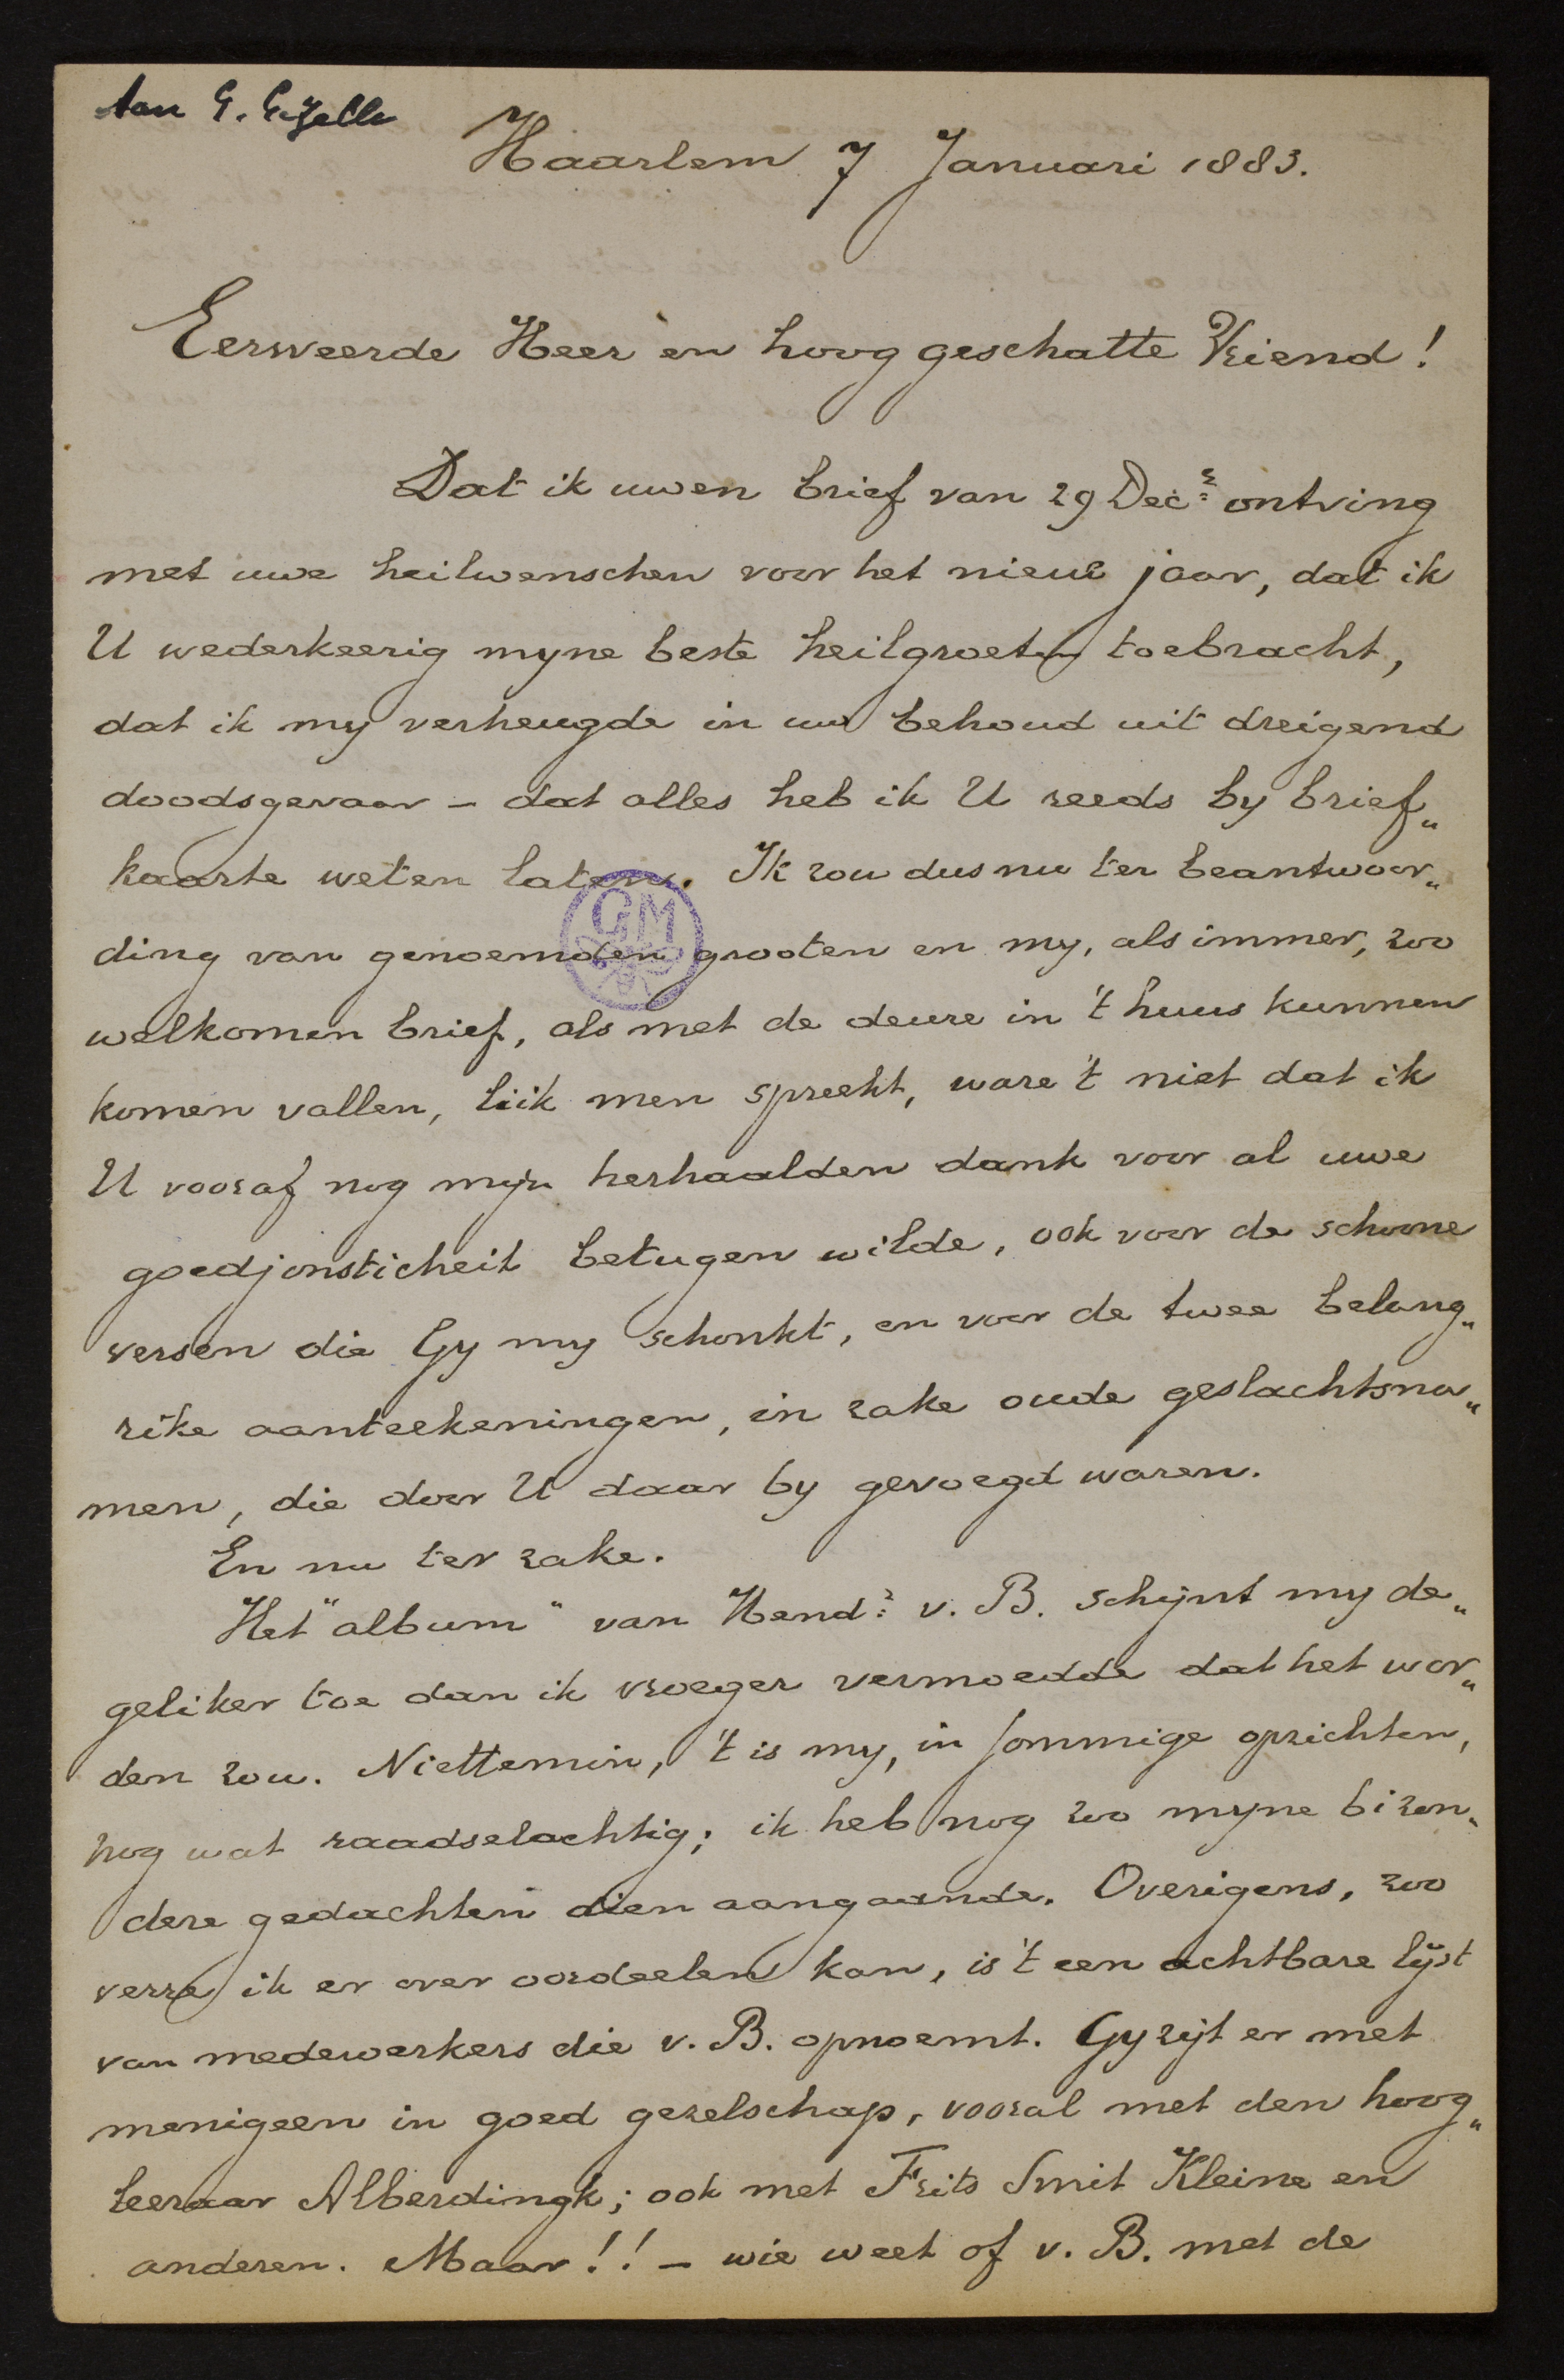 Aan G. Gezelle
Haarlem 7 Januari 1883.
Eerweerde Heer en hoog geschatte Vriend!
Dat ik uwen brief van 29 Decr ontving
met uwe heilwenschen voor het nieuwe jaar, dat ik
U wederkeerig myne beste heilgroeten toebracht,
dat ik my verheugde in uw behoud uit dreigend
doodsgevaar – dat alles heb ik U reeds by brief„
kaarte weten laten. Ik zou dus nu ter beantwoor„
GM
ding van genoemden grooten en my, als immer, zoo
welkomen brief, als met de deure in 't huus kunnen
komen vallen, liik men spreekt, ware 't niet dat ik
U vooraf nog mijn herhaalden dank voor al uwe
goedjonsticheit betugen wilde, ook voor de schoone
versen die Gy my schonkt, en voor de twee belang„
rike aanteekeningen, in zake oude geslachtsna„
men, die door U daar by gevoegd waren.
En nu ter zake.
Het "album" van Hendr v. B. schijnt my de„
geliker toe dan ik vroeger vermoedde dat het wor„
den zou. Niettemin, 't is my, in sommige opzichten,
nog wat raadselachtig; ik heb nog zoo myne bizon„
dere gedachten dien aangaande. Overigens, zoo
verre ik er over oordeelen kan, is 't een achtbare lijst
van medewerkers die v. B. opnoemt. Gy zijt er met
menigeen in goed gezelschap, vooral met den hoog„
leeraar Alberdingk; ook met Frits Smit Kleine en
anderen. Maar!! – wie weet of v. B. met de